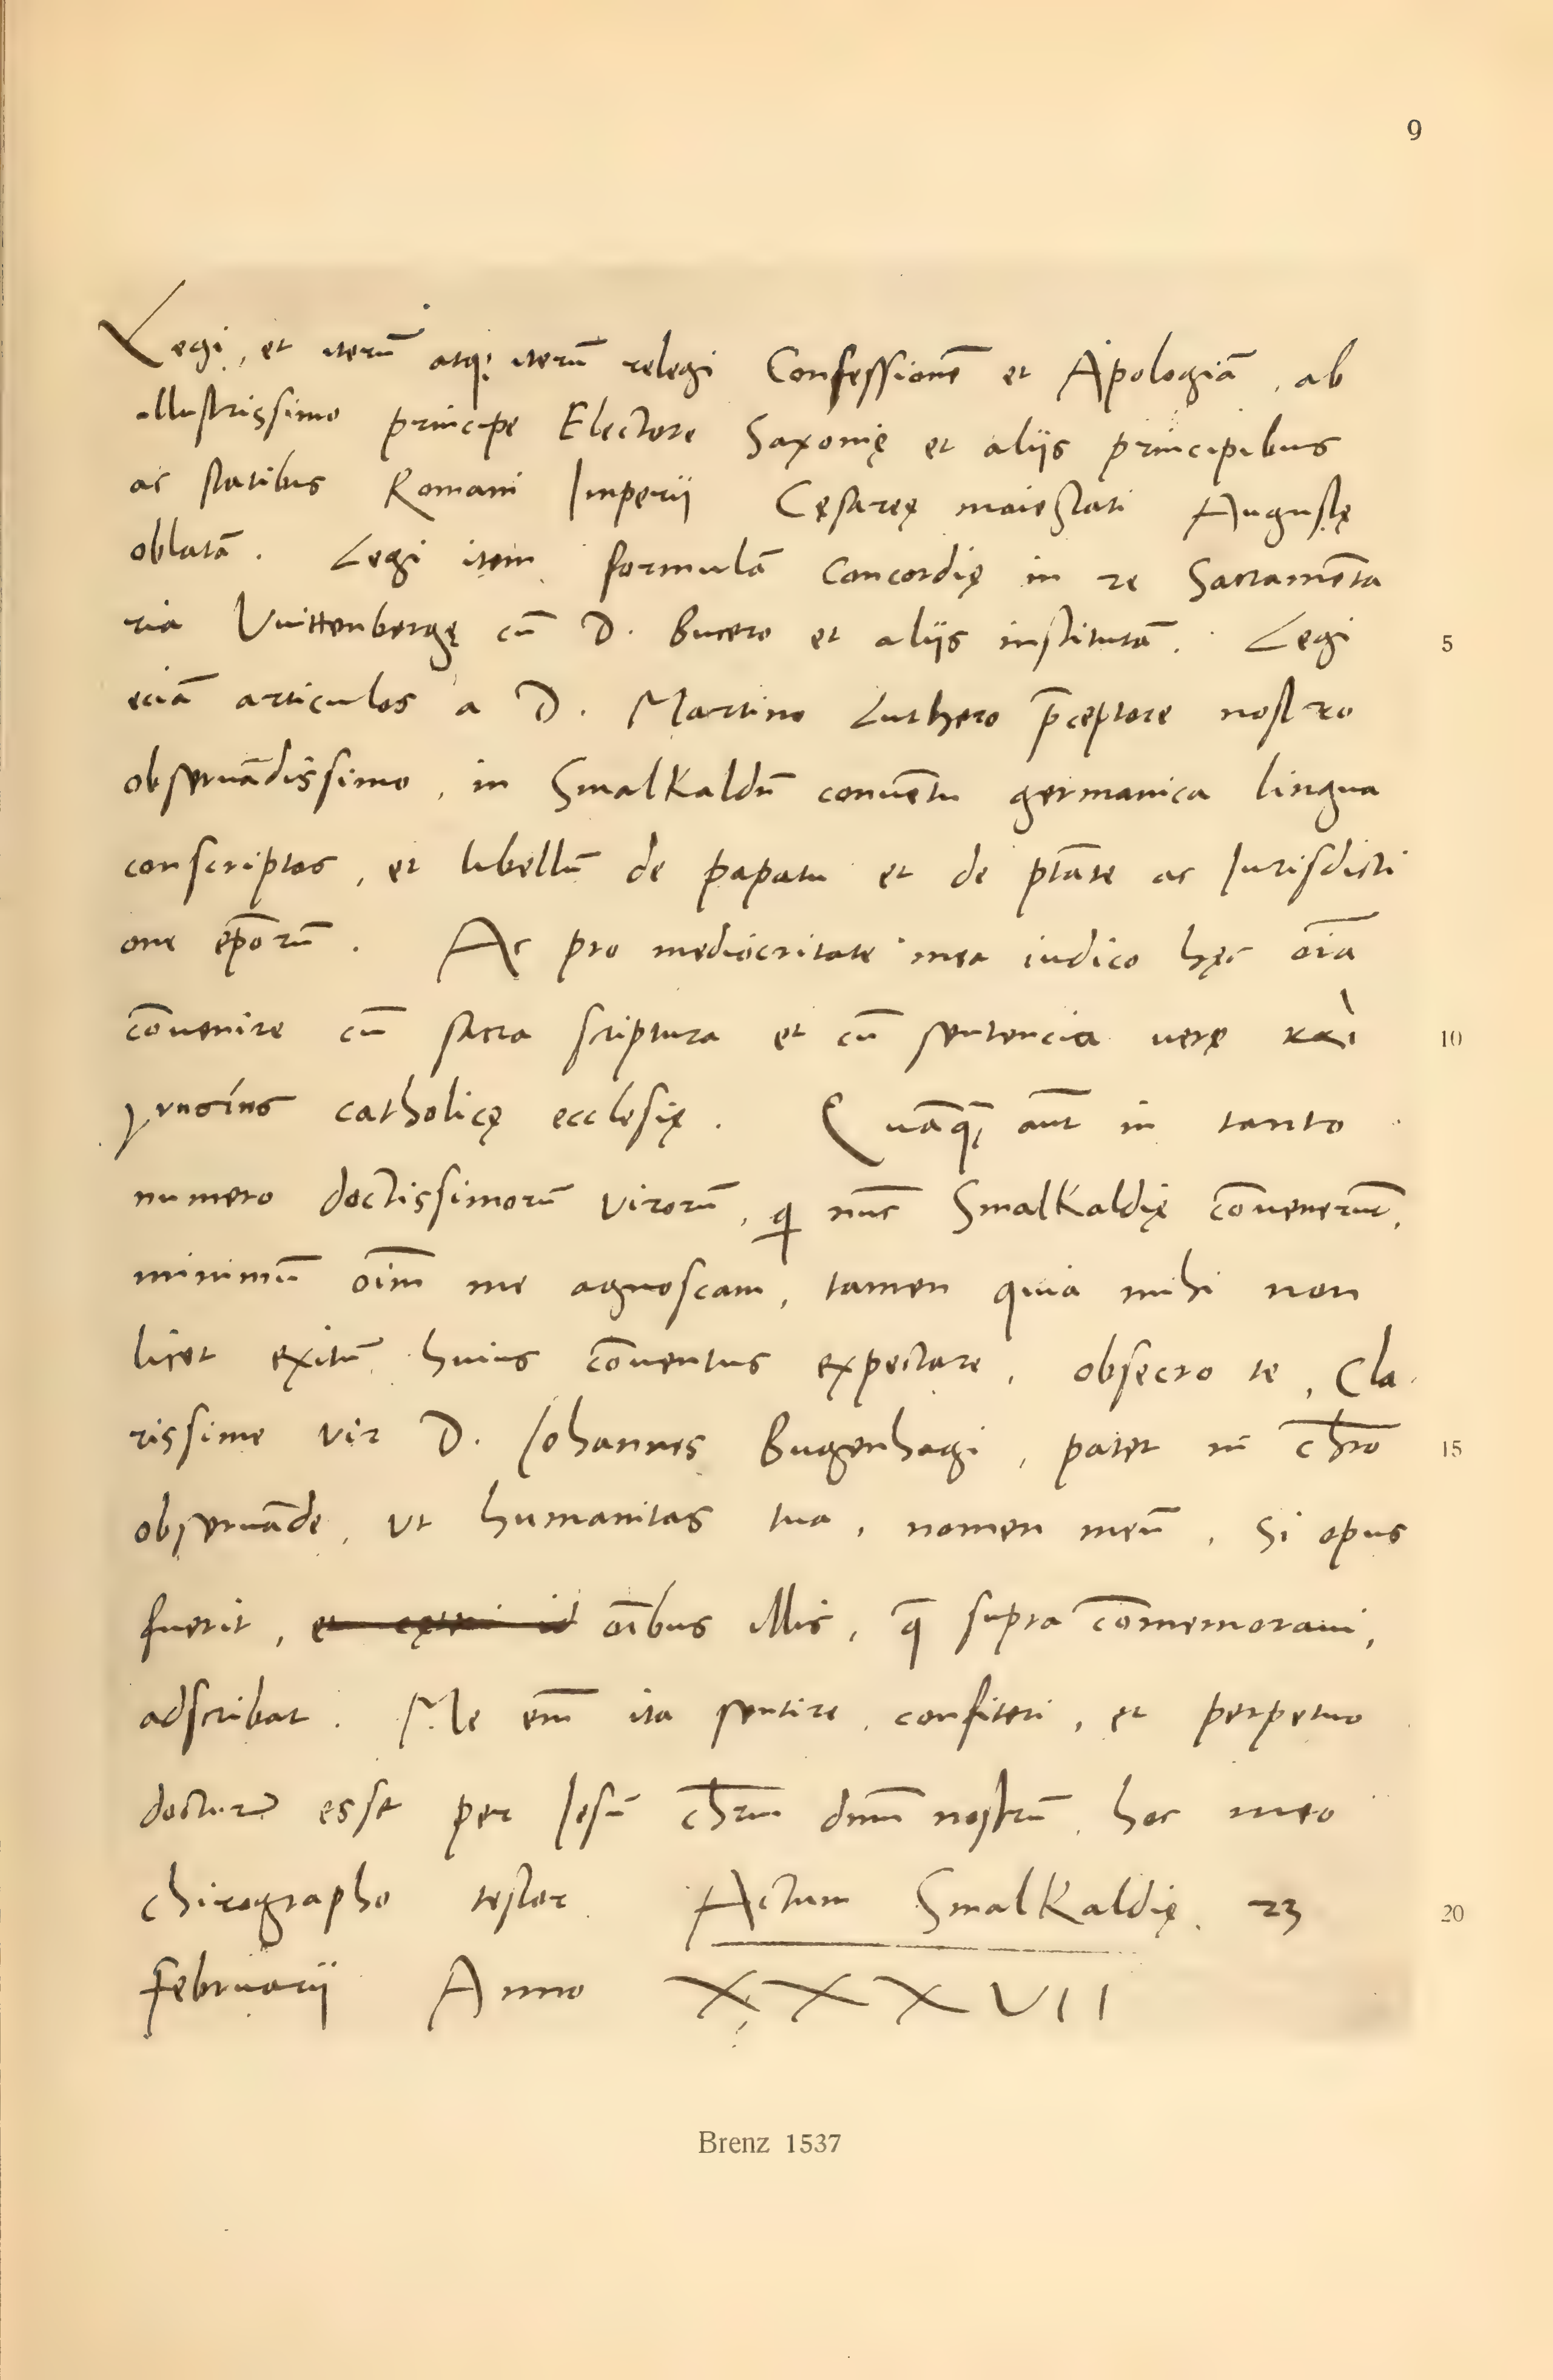 9
Legi, et iterū atq; iterū relegi Confessionē et Apologiā, ab
illustrissimo principe Electore Saxonię et aliis principibus
ac statibus Romani Imperii Cęsaręę maiestati Augustę
oblatā. Legi item formulā Concordię in re Sacramēta
ria Vuittenbergę cū D. Bucero et aliis institutā. Legi 5
eciā articulos a D. Martino Luthero p̄ceptore nostro
obseruādissimo, in Smalkaldū conuētu germanica lingua
conscriptos, et libellū de papatu et de ptāte ac Iurisdicti
one ep̄orū. Ac pro mediocritate mea iudico hęc oīa
cōuenire cū sacra scriptura et cū sentencia verę καὶ 10
γνησίης catholicę ecclesię. Quāq̄ aūt in tanto
numero doctissimorū virorū, qi nūc Smalkaldię cōuenerūt,
minimū oīm me agnoscam, tamen quia mihi non
licet exitū huius cōuentus expectare, obsecro te, Cla
rissime vir D. Iohannes Bugenhagi, pater in chr̄o 15
obseruāde, vt humanitas tua, nomen meū, si opus
fuerit, et cęteri id oībus illis, q̄ supra cōmemoraui,
adscribat. Me em̄ ita sentire, confiteri, et perpetuo
docturū esse per Iesū chr̄m dn̄m nostrū, hoc meo
chirographo testor. Actum Smalkaldię. 23 20
Februarii Anno XXXVII
Brenz 1537